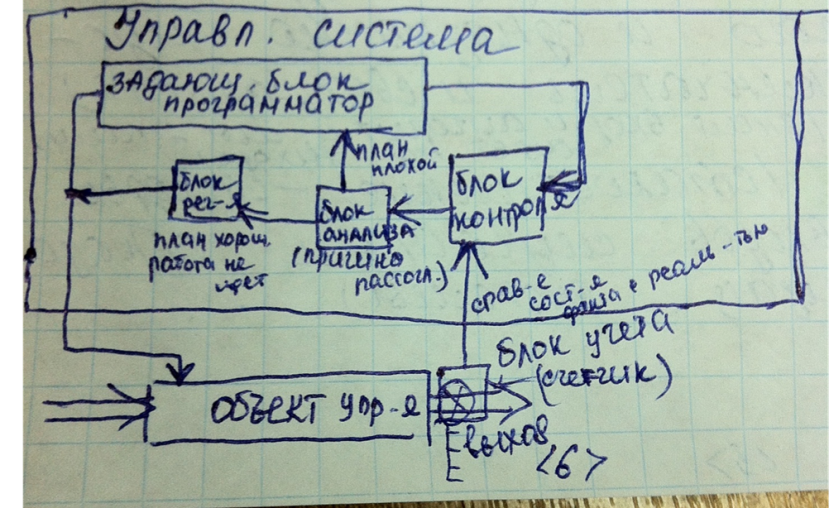 Управл. система
ЗАДАЮЩ. блок
программатор
план
плохой
блок
рег-я
блок
анализа
(причина
рассогл.)
блок
контроля
план хорош
работа не
идет
срав-е
сост-я
факта с реаль-тью
блок учета
(счетчик)
ОБЪЕКТ УПР-Я
выход
<6>